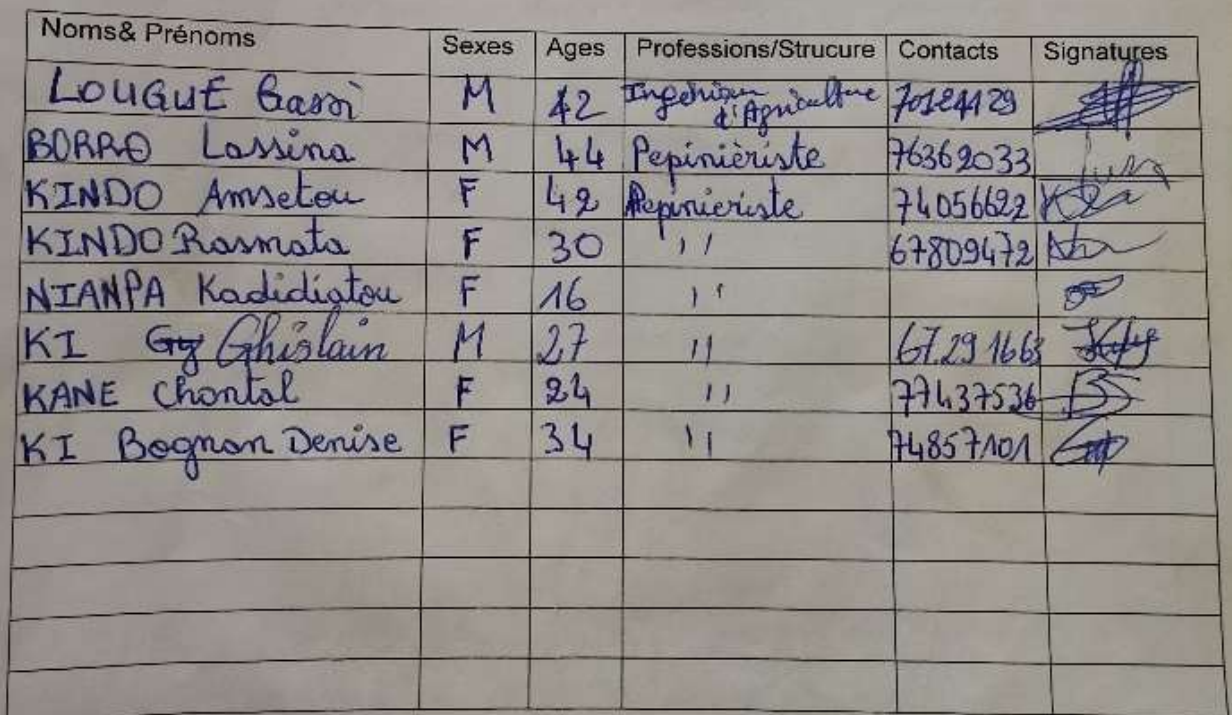 Noms& Prénoms Sexes Ages Professions/Strucure Contacts Signatures
LOUGUE Gassi M 42 Ingénieur d'Agriculture 70124129
BORRO Lassina M 44 Pepinièriste 76369033
KINDO Amsetou F 42 Pepinieriste 74056622
KINDO Rasmata F 30 '' 67809472
NIANPA Kadidiatou F 16 ''
KI Ghislain M 27 '' 67.29 1663
KANE Chantal F 24 '' 77437536
KI Bognon Denise F 34 '' 74857101